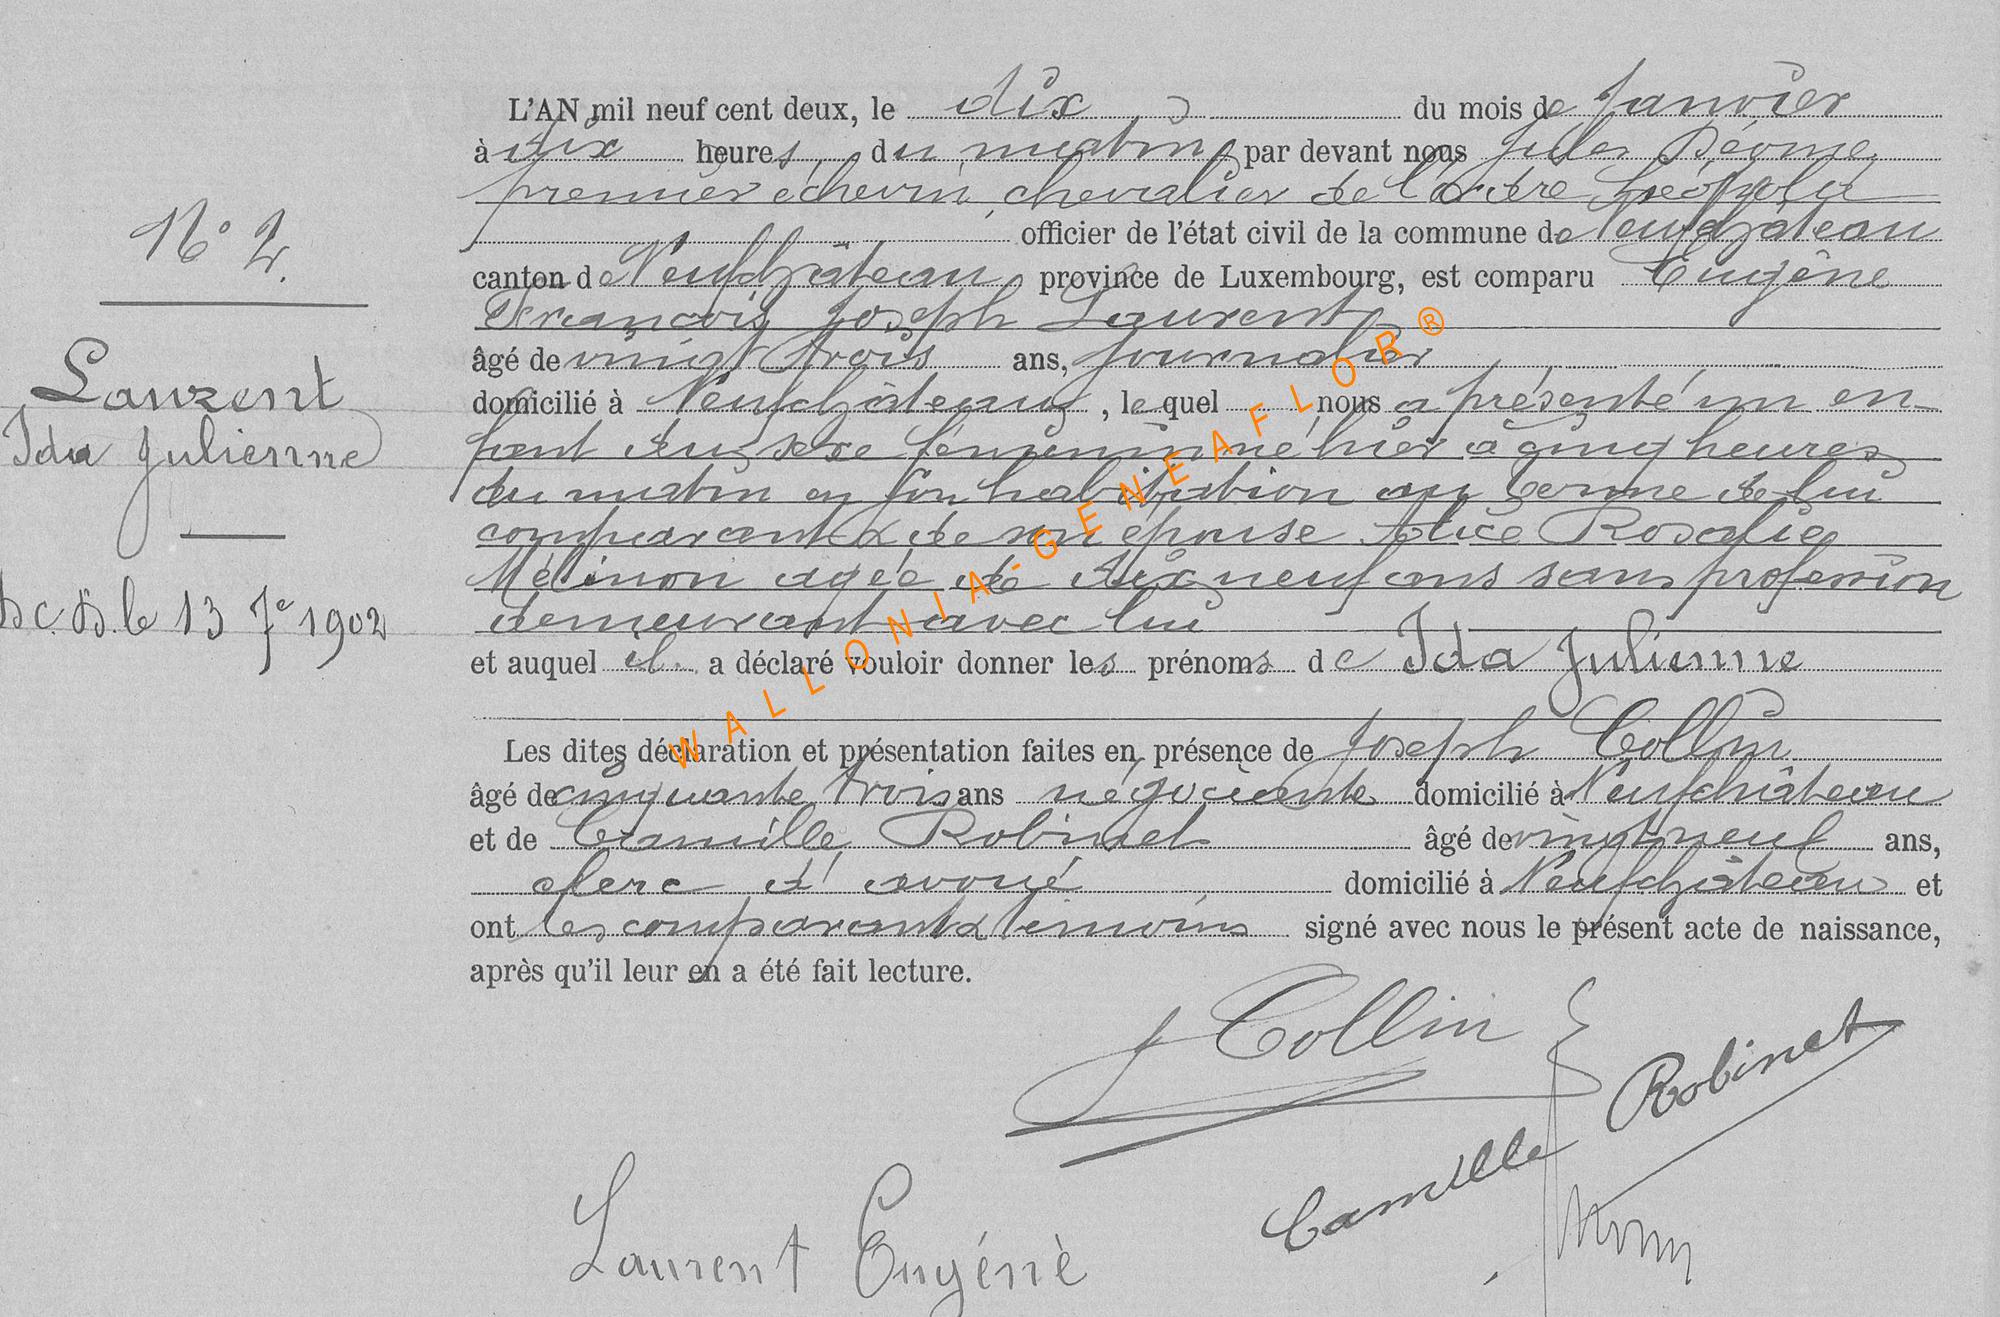 N° 2.
Laurent
Ida Julienne
le 13 7e 1902
L'AN mil neuf cent deux, le dix du mois de Janvier
à dix heures du matin, par devant nous Jules
premier échevin, chevalier de l'ordre Léopold
officier de l'état civil de la commune de Neufchâteau
canton de Neufchâteau, province de Luxembourg, est comparu Eugène
François Joseph Laurent
âgé de vingt trois ans, journalier
domicilié à Neufchâteau, le quel nous a présenté un en-
fant du sexe féminin né hier à cinq heures
du matin en son habitation au Terme de lui
comparant & de son épouse Alice Rosalie
Mélinon agée de dix neuf ans sans profession
demeurant avec lui
et auquel il a déclaré vouloir donner les prénoms de Ida Julienne
Les dites déclaration et présentation faites en présence de Joseph Collin
âgé de cinquante trois ans négociante domicilié à Neufchâteau
et de Camille Robinet âgé de vingt neuf ans,
clerc d'avoué domicilié à Neufchâteau et
ont les comparant & témoins signé avec nous le présent acte de naissance,
après qu'il leur en a été fait lecture.
J Collin
Camille Robinet
Laurent Eugénè
WALLONIA-GENEAFLOR®